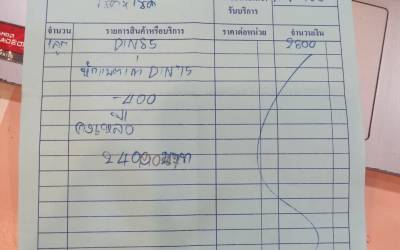 รับบริการ
จำนวน รายการสินค้าหรือบริการ ราคาต่อหน่วย จำนวนเงิน
1ลูก DIN85 2800
DIN75
-400
คงเหลือ
2400 บาท